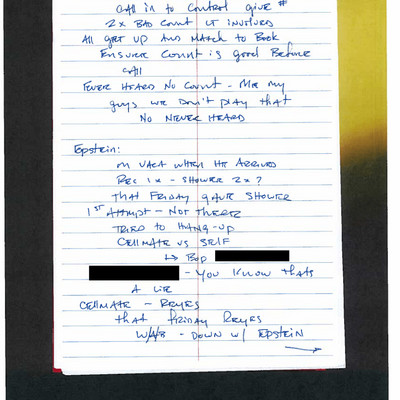 Call in to Control give #
2x Bad Count LT involved
All get up and march to Book
Ensure Count is good Before
Call
Never Heard No Count - Me my
guys we don't play that
No Never Heard
Epstein:
on vaca when he arrived
Rec 1x - Shower 2x?
that Friday gave shower
1st Attempt - Not there
tried to hang-up
Cellmate vs self
↳ Bop
- You know thats
a lie
Cellmate - Reyes
that friday Reyes
W/AB - Down w/ Epstein
→